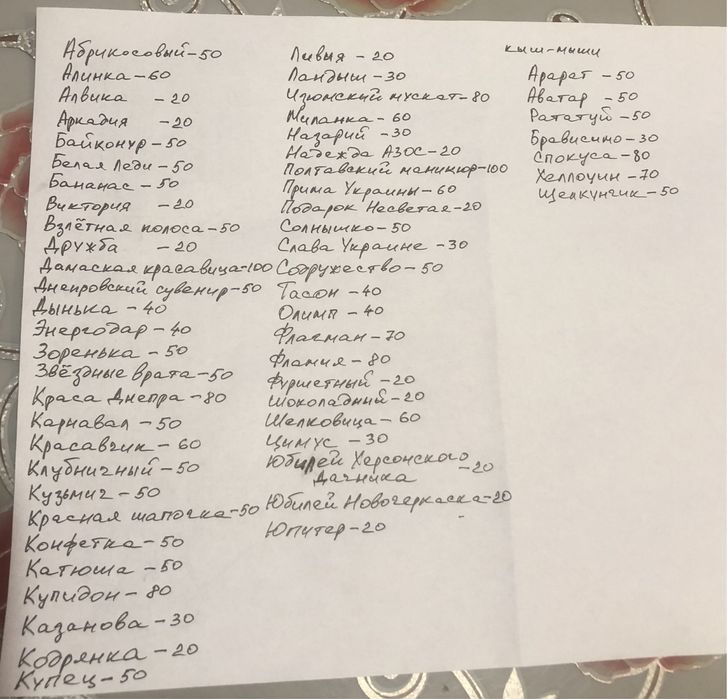 Абрикосовый-50
Алинка-60
Алвика -20
Аркадия -20
Байконур-50
Белая Леди-50
Бананас-50
Виктория -20
Взлётная полоса-50
Дружба -20
Дамаская красавица-100
Днепровский сувенир-50
Дынька-40
Энергодар-40
Зоренька-50
Звёздные врата-50
Краса Днепра-80
Карнавал-50
Красавчик-60
Клубничный-50
Кузьмич-50
Красная шапочка-50
Конфетка-50
Катюша-50
Купидон-80
Казанова-30
Кодрянка-20
Купец-50
Ливия -20
Ландыш-30
Изюмский мускат-80
Миланка-60
Назарий-30
Надежда АЗОС-20
Полтавский маникюр-100
Прима Украины-60
Подарок Несветая-20
Солнышко-50
Слава Украине-30
Содружество-50
Тасон-40
Олимп-40
Флагман-70
Фламия-80
Фуршетный-20
Шоколадный-20
Шелковица-60
Цимус -30
Юбилей Херсонского
Дачника -20
Юбилей Новочеркаска-20
Юпитер-20
кыш-мыши
Арарат -50
Аватар -50
Рататуй-50
Брависимо-30
Спокуса-80
Хеллоуин-70
Щелкунчик-50